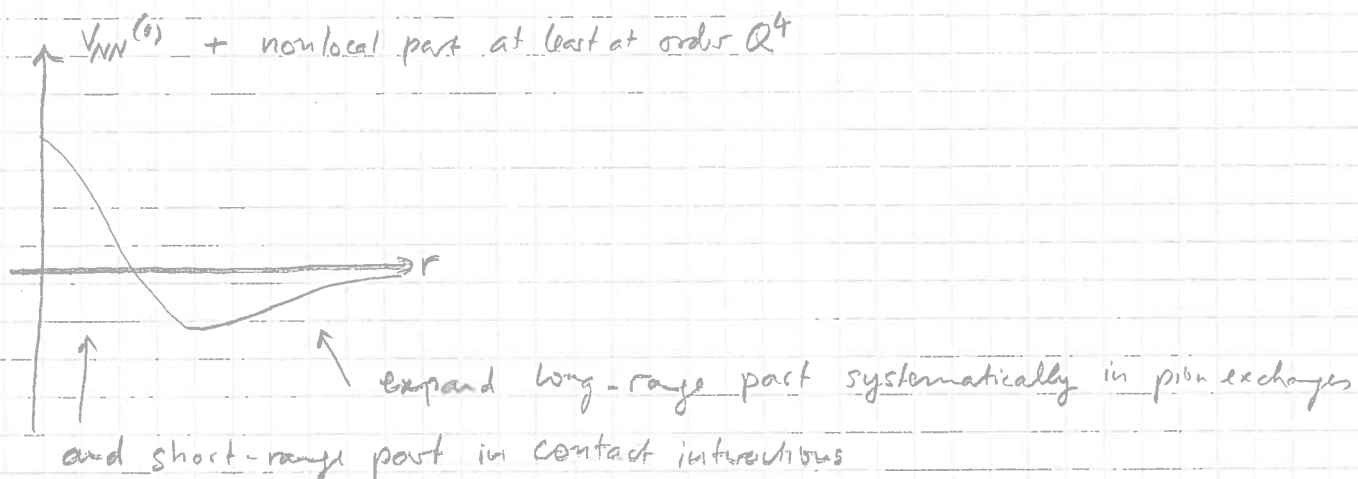 V_NN^(s) + nonlocal part at least at order Q^4
r
expand long-range part systematically in pion exchanges
and short-range part in contact interactions